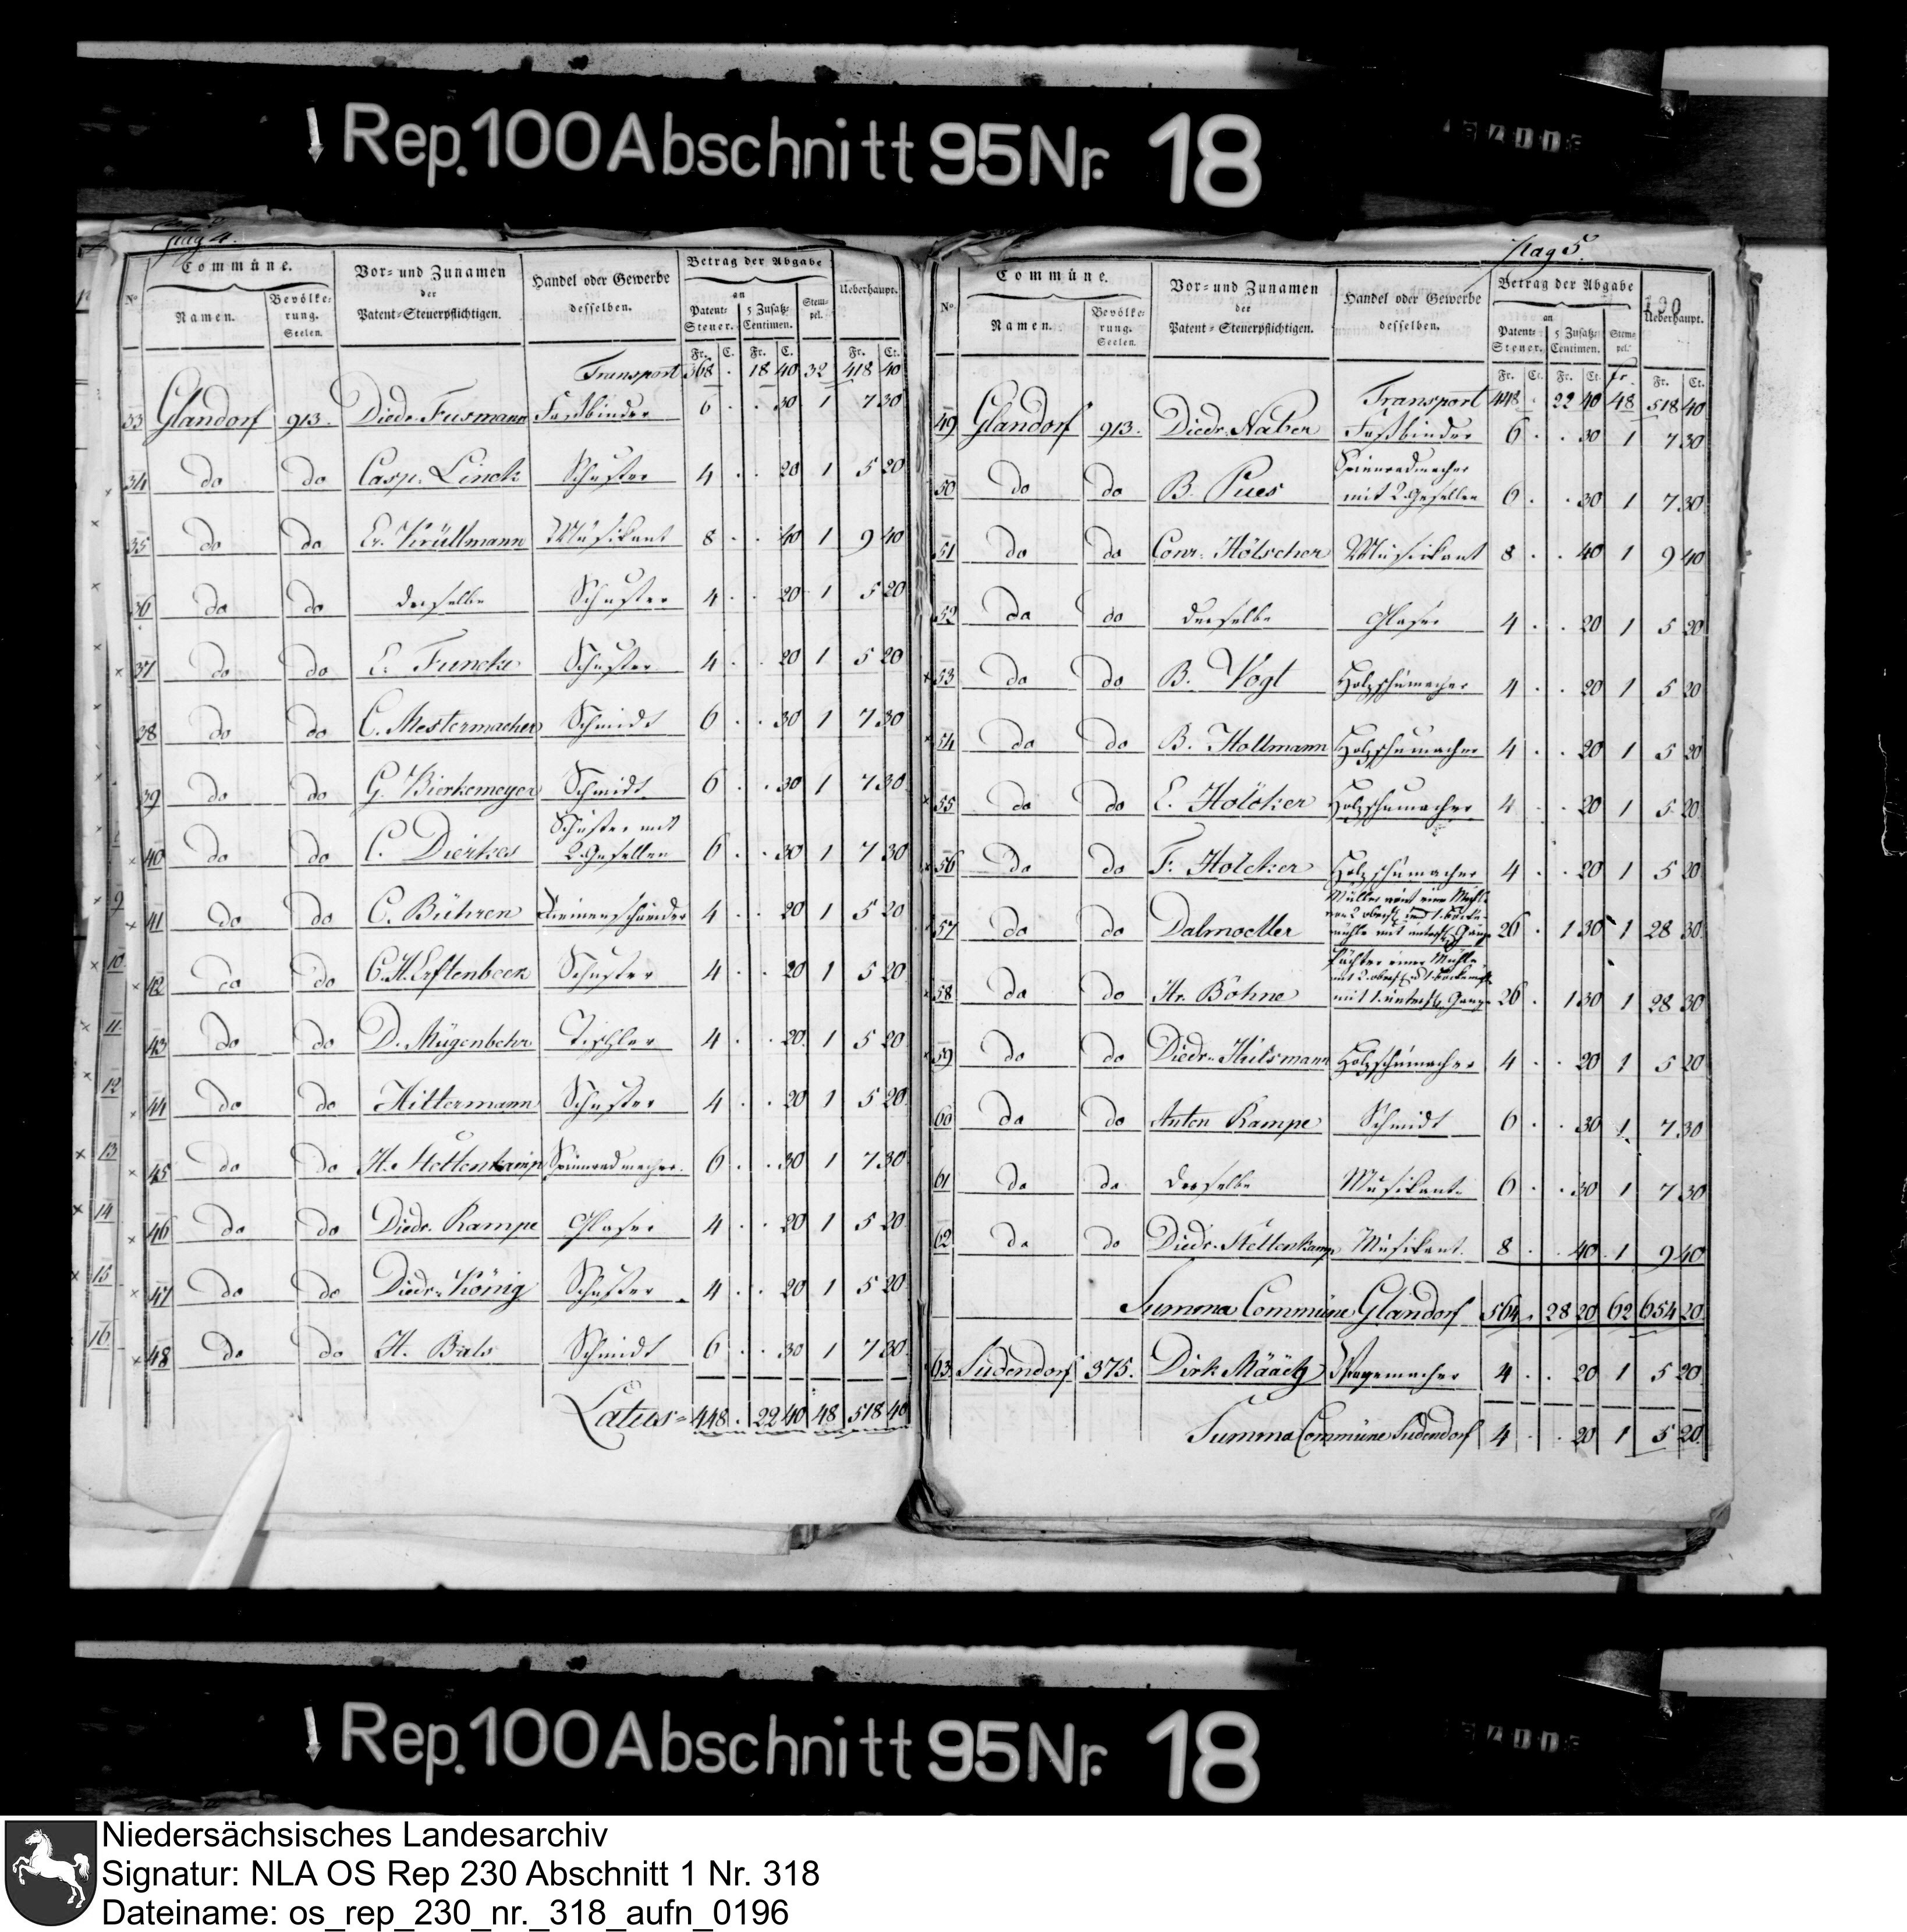 Rep. 100 Abschnitt 95 Nr. 18
pag 4.
No Commüne. Vor- und Zunamen der Patent-Steuerpflichtigen. Handel oder Gewerbe desselben. Betrag der Abgabe Ueberhaupt.
Namen. Bevölkerung. Seelen. an Patent-Steuer. 5 Zusatz-Centimen. Stempel.
Fr. C. Fr. C. Fr. Ct.
Transport 368 . 18 40 32 418 40
33 Glandorf 913. Diedr. Fusmann Faßbinder 6 . . 30 1 7 30
34 do do Casp. Linck Schuster 4 . . 20 1 5 20
35 do do Er. Krüllmann Musikant 8 . . 40 1 9 40
36 do do derselbe Schuster 4 . . 20 1 5 20
37 do do E. Funcke Schuster 4 . . 20 1 5 20
38 do do C. Mestermacher Schmidt 6 . . 30 1 7 30
39 do do G. Bierkemeyer Schmidt 6 . . 30 1 7 30
40 do do C. Dierkes Schuster mit
2 Gesellen 6 . . 30 1 7 30
41 do do C. Bühren Riemenschneider 4 . . 20 1 5 20
42 do do C. H. Erftenbeck Schuster 4 . . 20 1 5 20
43 do do D. Mügenbehr Tischler 4 . . 20 1 5 20
44 do do Hiltermann Schuster 4 . . 20 1 5 20
45 do do H. Stettenkamp Spinnradmacher. 6 . . 30 1 7 30
46 do do Diedr. Kampe Glaser 4 . . 20 1 5 20
47 do do Diedr. König Schuster 4 . . 20 1 5 20
48 do do H. Bals Schmidt 6 . . 30 1 7 30
Latus 448 . 22 40 48 518 40
9
10
11
12
13
14
15
16
pag 5.
130
No. Commüne. Vor- und Zunamen der Patent-Steuerpflichtigen. Handel oder Gewerbe desselben. Betrag der Abgabe Ueberhaupt.
Namen. Bevölkerung. Seelen. an Patent-Steuer. 5 Zusatz-Centimen. Stempel.
Fr. Ct. Fr. Ct. fr. Fr. Ct.
Transport 448 . 22 40 48 518 40
49 Glandorf 913. Diedr. Naber Faßbinder 6 . . 30 1 7 30
50 do do B. Pues Spinnradmacher
mit 2 Gesellen 6 . . 30 1 7 30
51 do do Conr. Hölscher Musikant 8 . . 40 1 9 40
52 do do derselbe Glaser 4 . . 20 1 5 20
53 do do B. Vogt Holzschumacher 4 . . 20 1 5 20
54 do do B. Hollmann Holzschumacher 4 . . 20 1 5 20
55 do do E. Holcker Holzschumacher 4 . . 20 1 5 20
56 do do F. Holcker Holzschumacher 4 . . 20 1 5 20
57 do do Dalmoeller Müller mit einer Mühle
26 . 1 30 1 28 30
58 do do Hr. Böhne Pächter einer Mühle
26 . 1 30 1 28 30
59 do do Diedr. Hülsmann Holzschumacher 4 . . 20 1 5 20
60 do do Anton Kampe Schmidt 6 . . 30 1 7 30
61 do do derselbe Musikant 6 . . 30 1 7 30
62 do do Diedr. Stettenkamp Musikant. 8 . . 40 1 9 40
Summa Commüne Glandorf 564 . 28 20 62 654 20
63 Sudendorf 375. Dirk Määtz Wagemacher 4 . . 20 1 5 20
Summa Commüne Sudendorf 4 . . 20 1 5 20
Rep. 100 Abschnitt 95 Nr. 18
Niedersächsisches Landesarchiv
Signatur: NLA OS Rep 230 Abschnitt 1 Nr. 318
Dateiname: os_rep_230_nr._318_aufn_0196